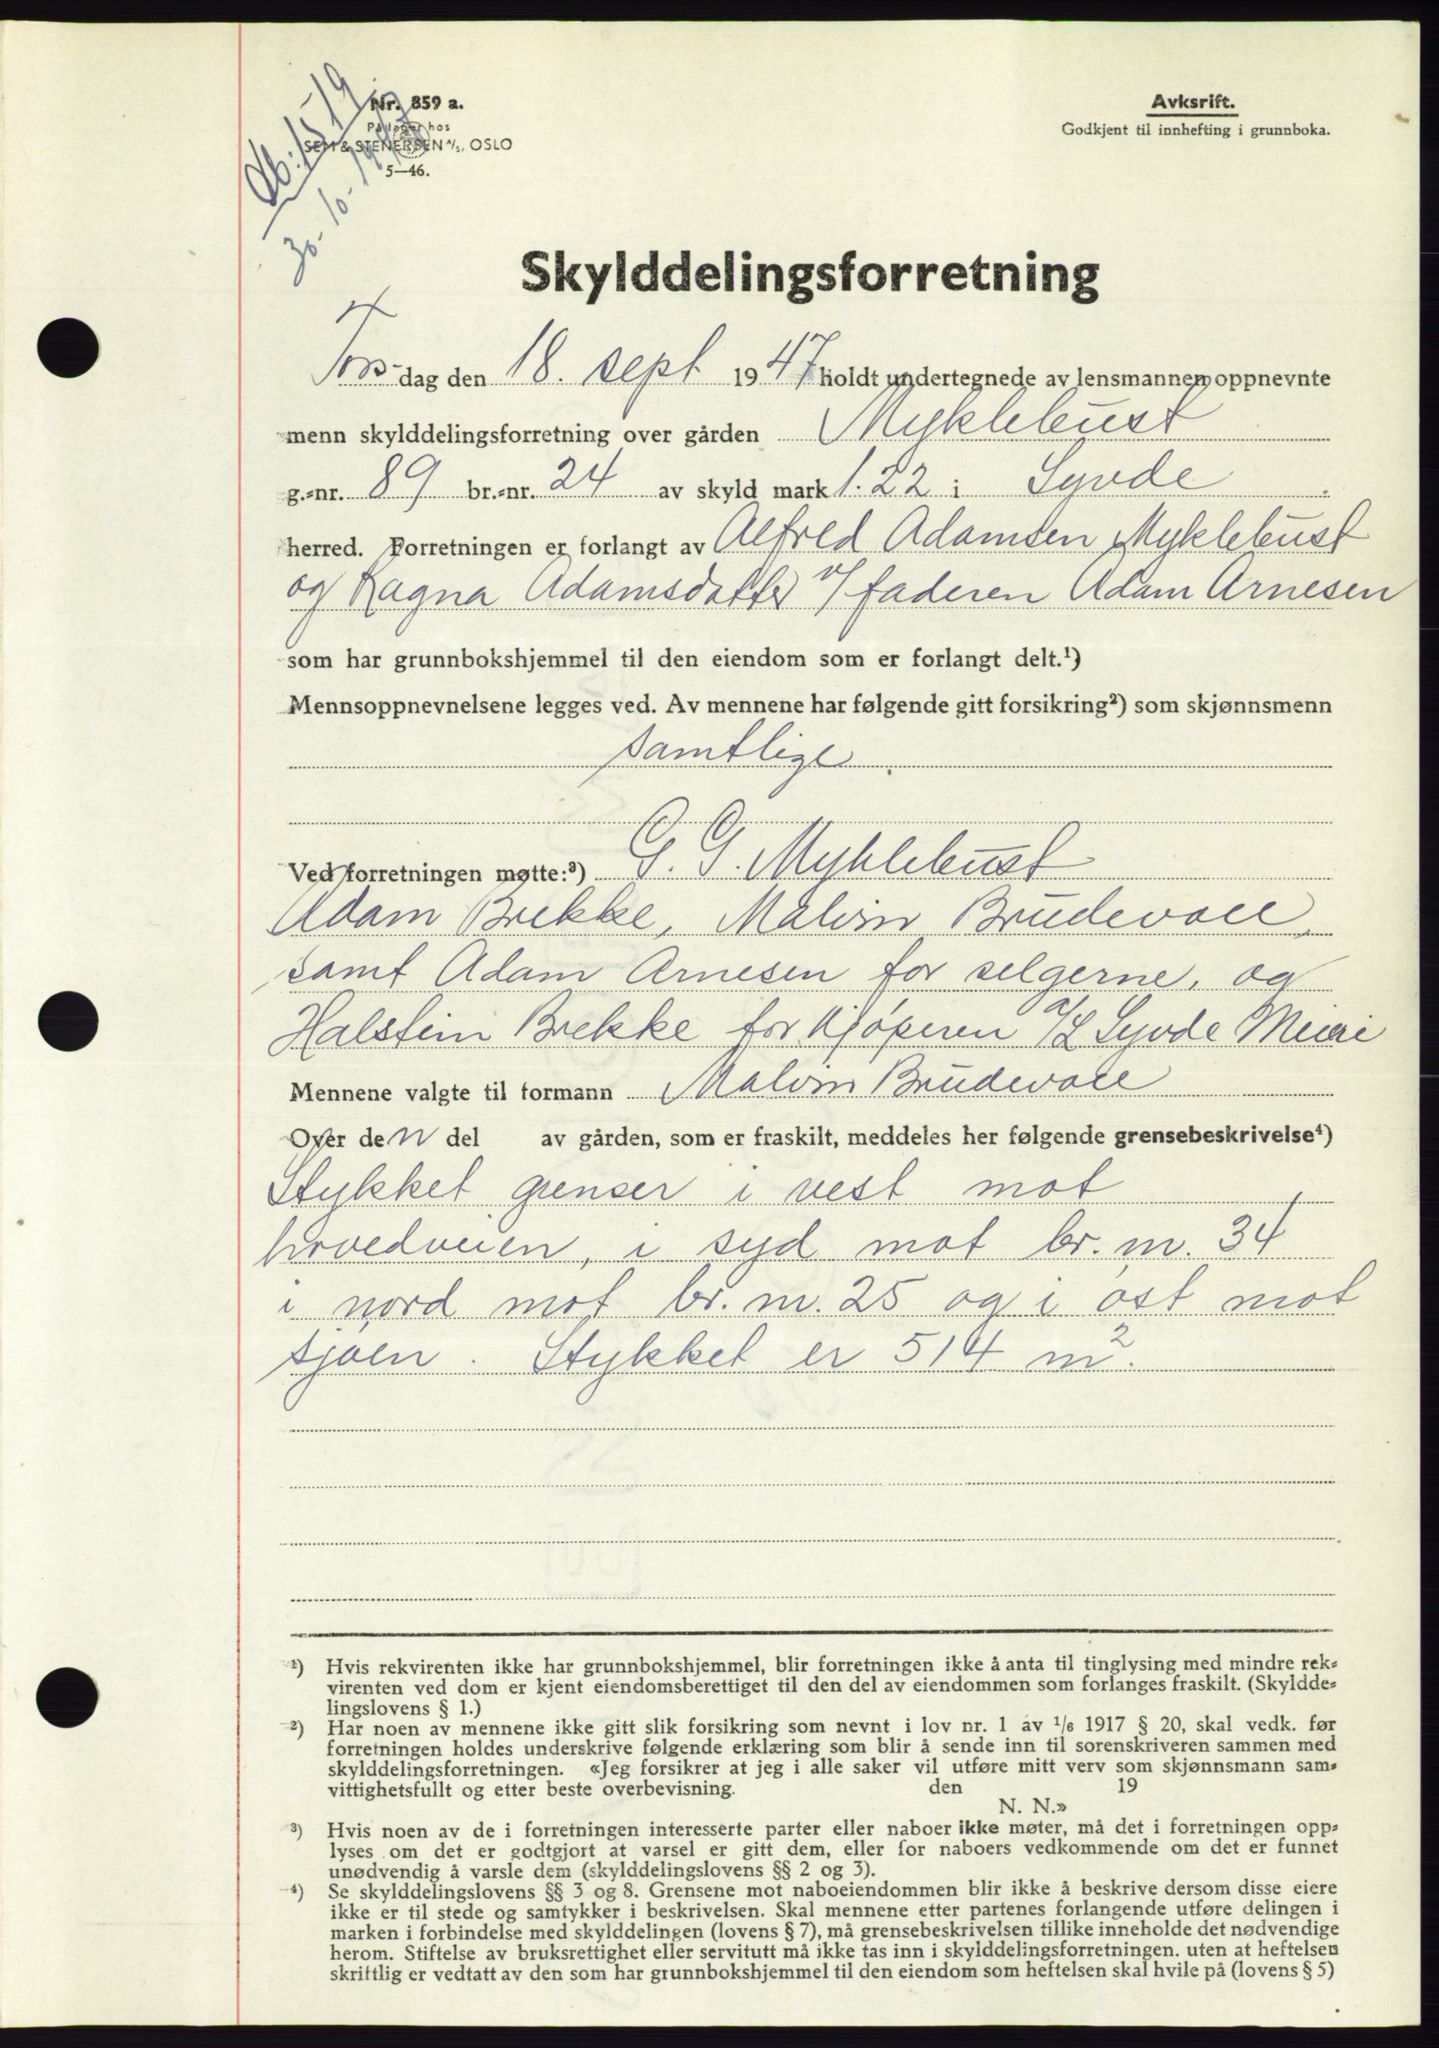 Db: 1519
30-10-1947
Nr. 859 a.
På lager hos
SEM & STENERSEN A/S, OSLO
5—46.
Avksrift.
Godkjent til innhefting i grunnboka.
Skylddelingsforretning
Torsdag den 18. sept 1947 holdt undertegnede av lensmannen oppnevnte
menn skylddelingsforretning over gården Myklebust
g.=nr. 89 br.=nr. 24 av skyld mark 1.22 i Syvde
herred. Forretningen er forlangt av Alfred Adamsen Myklebust
og Ragna Adamsdatter v/ faderen Adam Arnesen
som har grunnbokshjemmel til den eiendom som er forlangt delt.¹)
Mennsoppnevnelsene legges ved. Av mennene har følgende gitt forsikring²) som skjønnsmenn
samtlige
Ved forretningen møtte:³) G. G. Myklebust
Adam Brekke, Malvin Brudevoll,
samt Adam Arnesen for selgerne, og
Halstein Brekke for kjøperen a/L Syvde Meieri
Mennene valgte til formann Malvin Brudevoll
Over den del av gården, som er fraskilt, meddeles her følgende grensebeskrivelse⁴)
Stykket grenser i vest mot
hovedveien, i syd mot br. nr. 34
i nord mot br. nr. 25 og i øst mot
sjøen. Stykket er 514 m².
¹) Hvis rekvirenten ikke har grunnbokshjemmel, blir forretningen ikke å anta til tinglysing med mindre rek=
virenten ved dom er kjent eiendomsberettiget til den del av eiendommen som forlanges fraskilt. (Skyldde=
lingslovens § 1.)
²) Har noen av mennene ikke gitt slik forsikring som nevnt i lov nr. 1 av 1/6 1917 § 20, skal vedk. før
forretningen holdes underskrive følgende erklæring som blir å sende inn til sorenskriveren sammen med
skylddelingsforretningen. «Jeg forsikrer at jeg i alle saker vil utføre mitt verv som skjønnsmann sam=
vittighetsfullt og etter beste overbevisning. den 19
N. N.»
³) Hvis noen av de i forretningen interesserte parter eller naboer ikke møter, må det i forretningen opp=
lyses om det er godtgjort at varsel er gitt dem, eller for naboers vedkommende om det er funnet
unødvendig å varsle dem (skylddelingslovens §§ 2 og 3).
⁴) Se skylddelingslovens §§ 3 og 8. Grensene mot naboeiendommen blir ikke å beskrive dersom disse eiere
ikke er til stede og samtykker i beskrivelsen. Skal mennene etter partenes forlangende utføre delingen i
marken i forbindelse med skylddelingen (lovens § 7), må grensebeskrivelsen tillike inneholde det nødvendige
herom. Stiftelse av bruksrettighet eller servitutt må ikke tas inn i skylddelingsforretningen. uten at heftelsen
skriftlig er vedtatt av den som har grunnbokshjemmel til den eiendom som heftelsen skal hvile på (lovens § 5)